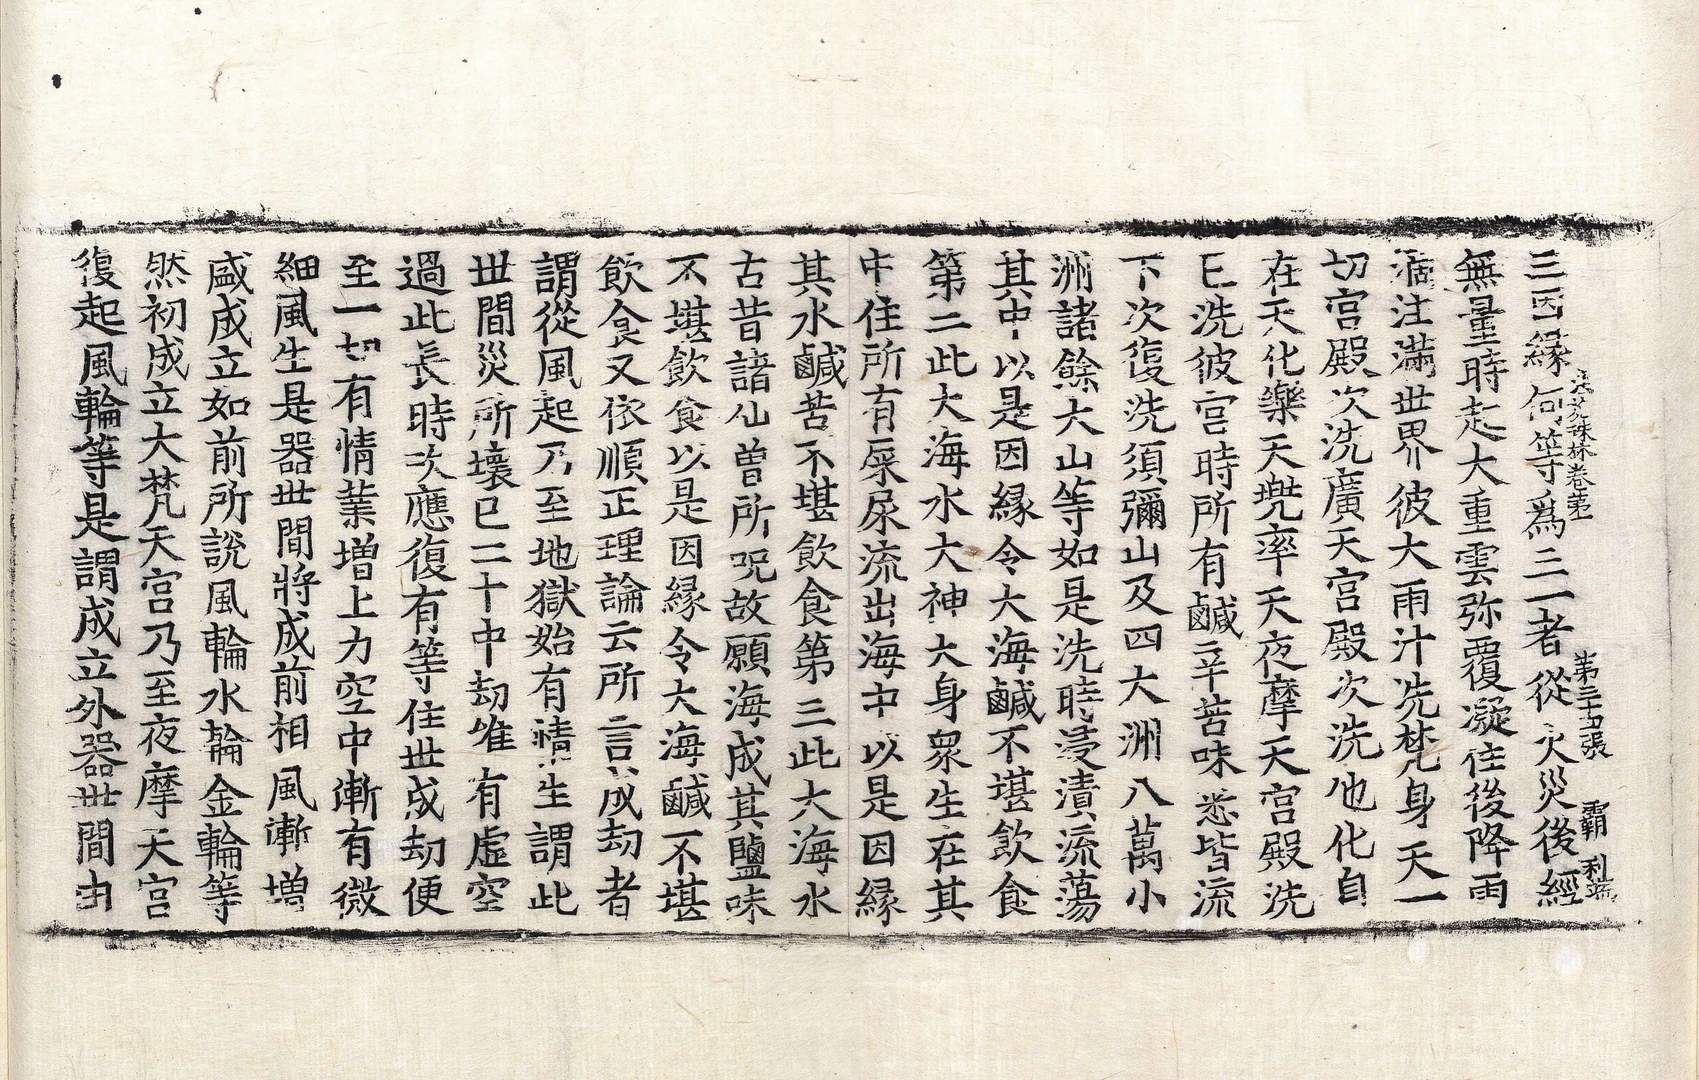 法苑珠林卷第一 第三十五張 覇 利瑞
三因緣何等爲三一者從火災後經
無量時起大重雲弥覆凝住後降雨
滴注滿世界彼大雨汁洗梵身天一
切宮殿次洗廣天宮殿次洗他化自
在天化樂天兠率天夜摩天宮殿洗
已洗彼宮時所有鹹辛苦味悉皆流
下次復洗須彌山及四大洲八萬小
洲諸餘大山等如是洗時浸漬流蕩
其中以是因緣令大海鹹不堪飲食
第二此大海水大神大身衆生在其
中住所有屎尿流出海中以是因緣
其水鹹苦不堪飲食第三此大海水
古昔諸仙曾所呪故願海成其鹽味
不堪飲食以是因緣令大海鹹不堪
飲食又依順正理論云所言成劫者
謂從風起乃至地獄始有情生謂此
世間災所壞已二十中劫唯有虛空
過此長時次應復有等住世成劫便
至一切有情業增上力空中漸有微
細風生是器世間將成前相風漸增
盛成立如前所說風輪水輪金輪等
然初成立大梵天宮乃至夜摩天宮
復起風輪等是謂成立外器世間由